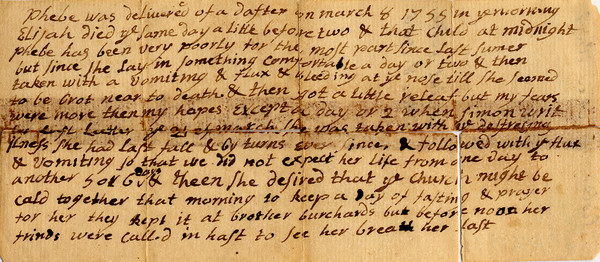 Phebe was delivered of a dafter on march 8 1755 in ye morning
Elijah died ye same day a litle before two & that child at midnight
phebe has been very poorly for the most part since last sumer
but since she Lay in something comfortable a day or two & then
taken with a vomiting & flux & bleeding at ye nose till she seemed
to be brot near to death & then got a litle releaf but my fears
were more then my hopes Except a day or 2 when simon writ
his last Leatter ye 21 of march she was taken with ye destresing
ilness she had last fall & by turns ever since & followed with ye flux
& vomiting so that we did not expect her life from one day to
another 5 or 6 days & then she desired that ye church might be
cald together that morning to keep a day of fasting & prayer
for her they kept it at brother burchards but before noon her
frinds were called in hast to see her breath her last